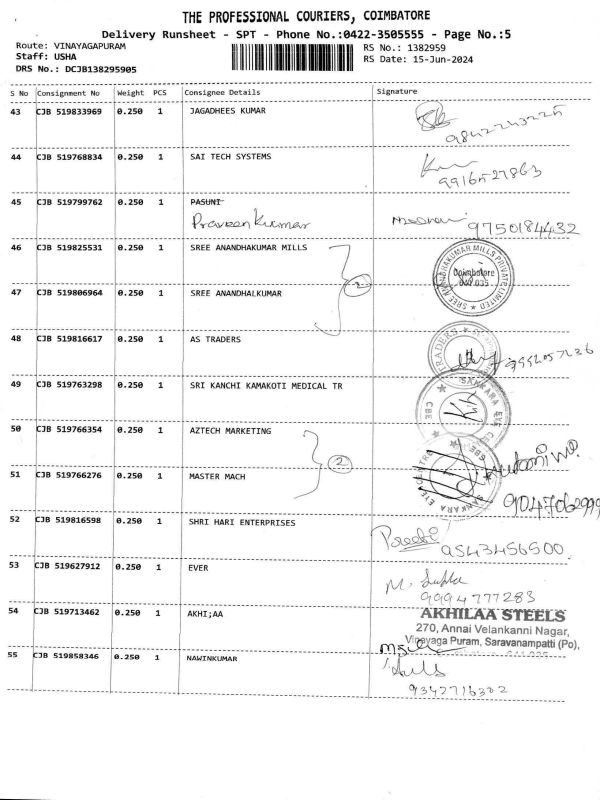 THE PROFESSIONAL COURIERS, COIMBATORE
Delivery Runsheet - SPT - Phone No.:0422-3505555 - Page No.:5
Route: VINAYAGAPURAM
Staff: USHA
DRS No.: DCJB138295905
RS No.: 1382959
RS Date: 15-Jun-2024
S No Consignment No Weight PCS Consignee Details Signature
43 CJB 519833969 0.250 1 JAGADHEES KUMAR
9842243225
44 CJB 519768834 0.250 1 SAI TECH SYSTEMS
9916527863
45 CJB 519799762 0.250 1 PASUNI
Praveen Kumar 9750184432
46 CJB 519825531 0.250 1 SREE ANANDHAKUMAR MILLS
2
SREE ANANDHAKUMAR MILLS PRIVATE LIMITED
Coimbatore
641 035
47 CJB 519806964 0.250 1 SREE ANANDHALKUMAR
48 CJB 519816617 0.250 1 AS TRADERS
TRADERS
49 CJB 519763298 0.250 1 SRI KANCHI KAMAKOTI MEDICAL TR
SANKARA EYE
CBE
50 CJB 519766354 0.250 1 AZTECH MARKETING
2
51 CJB 519766276 0.250 1 MASTER MACH
SANKARA EYE
9047062999
52 CJB 519816598 0.250 1 SHRI HARI ENTERPRISES
Preethi 9543456500.
53 CJB 519627912 0.250 1 EVER
M. Gupta
9994777283
54 CJB 519713462 0.250 1 AKHI;AA
AKHILAA STEELS
270, Annai Velankanni Nagar,
Vinayaga Puram, Saravanampatti (Po),
55 CJB 519858346 0.250 1 NAWINKUMAR
9342716302